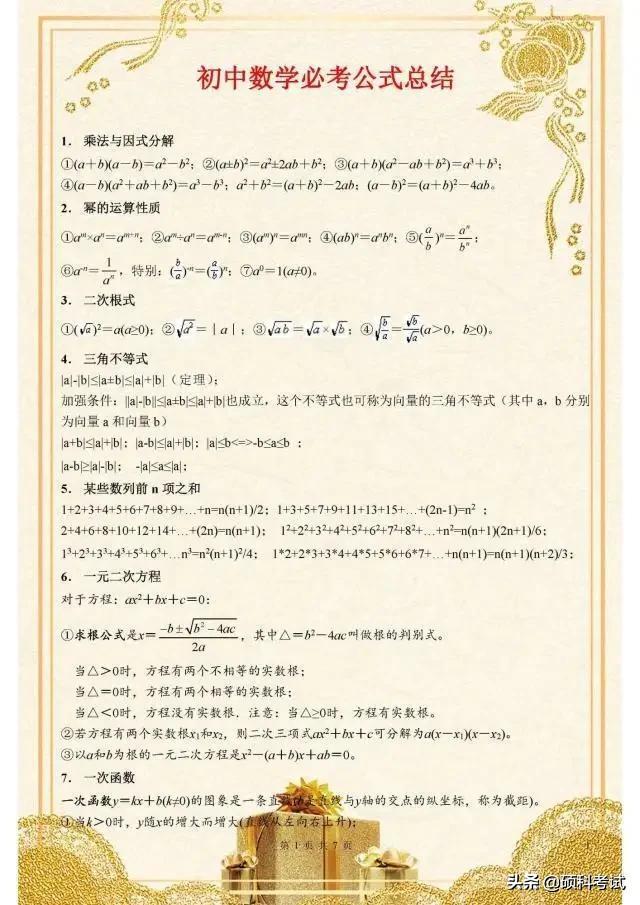 初中数学必考公式总结
1. 乘法与因式分解
①(a+b)(a-b)=a²-b²；②(a±b)²=a²±2ab+b²；③(a+b)(a²-ab+b²)=a³+b³；
④(a-b)(a²+ab+b²)=a³-b³；a²+b²=(a+b)²-2ab；(a-b)²=(a+b)²-4ab。
2. 幂的运算性质
①aᵐ×aⁿ=aᵐ⁺ⁿ；②aᵐ÷aⁿ=aᵐ⁻ⁿ；③(aᵐ)ⁿ=aᵐⁿ；④(ab)ⁿ=aⁿbⁿ；⑤(a/b)ⁿ=aⁿ/bⁿ；
⑥a⁻ⁿ=1/aⁿ，特别：(b/a)⁻ⁿ=(a/b)ⁿ；⑦a⁰=1(a≠0)。
3. 二次根式
①(√a)²=a(a≥0)；②√a²=|a|；③√ab=√a×√b；④√(b/a)=√b/√a(a>0，b≥0)。
4. 三角不等式
|a|-|b|≤|a±b|≤|a|+|b|（定理）；
加强条件：||a|-|b||≤|a±b|≤|a|+|b|也成立，这个不等式也可称为向量的三角不等式（其中a，b分别
为向量a和向量b）
|a+b|≤|a|+|b|；|a-b|≤|a|+|b|；|a|≤b<=>-b≤a≤b ；
|a-b|≥|a|-|b|； -|a|≤a≤|a|；
5. 某些数列前n项之和
1+2+3+4+5+6+7+8+9+…+n=n(n+1)/2；1+3+5+7+9+11+13+15+…+(2n-1)=n² ；
2+4+6+8+10+12+14+…+(2n)=n(n+1)； 1²+2²+3²+4²+5²+6²+7²+8²+…+n²=n(n+1)(2n+1)/6；
1³+2³+3³+4³+5³+6³+…n³=n²(n+1)²/4； 1*2+2*3+3*4+4*5+5*6+6*7+…+n(n+1)=n(n+1)(n+2)/3；
6. 一元二次方程
对于方程：ax²+bx+c=0：
①求根公式是x=(-b±√(b²-4ac))/2a，其中△=b²-4ac叫做根的判别式。
当△>0时，方程有两个不相等的实数根；
当△=0时，方程有两个相等的实数根；
当△<0时，方程没有实数根．注意：当△≥0时，方程有实数根。
②若方程有两个实数根x₁和x₂，则二次三项式ax²+bx+c可分解为a(x-x₁)(x-x₂)。
③以a和b为根的一元二次方程是x²-(a+b)x+ab=0。
7. 一次函数
一次函数y=kx+b(k≠0)的图象是一条直线(b是直线与y轴的交点的纵坐标，称为截距)。
①当k>0时，y随x的增大而增大(直线从左向右上升)；
第 1 页 共 7 页
头条 @硕科考试